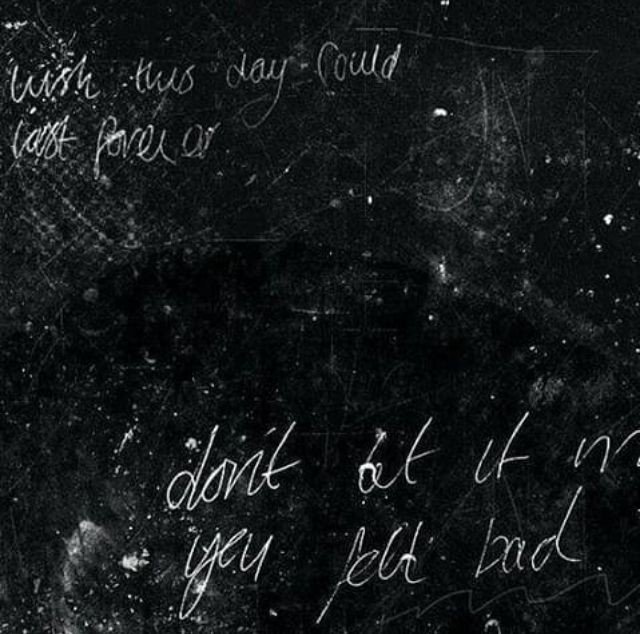 wish this day could
last forever
don't let it m
yeu felt bad